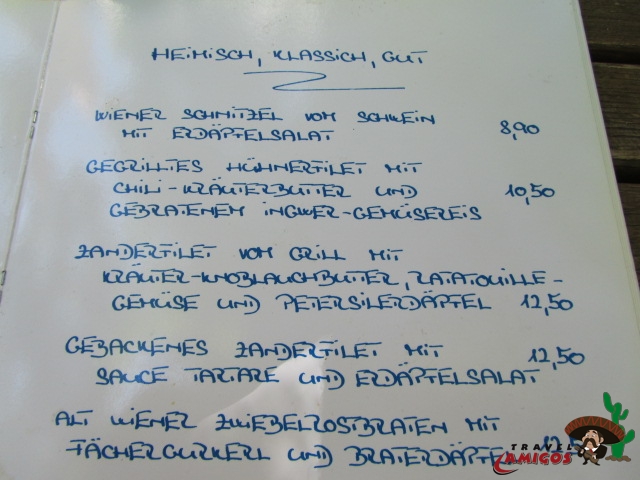 HEIMISCH, KLASSICH, GUT
WIENER SCHNITZEL VOM SCHWEIN
MIT ERDÄPFELSALAT 8,90
GEGRILLTES HÜHNERFILET MIT
CHILI-KRÄUTERBUTTER UND 10,50
GEBRATENEM INGWER-GEMÜSEREIS
ZANDERFILET VOM GRILL MIT
KRÄUTER-KNOBLAUCHBUTTER, RATATOUILLE-
GEMÜSE UND PETERSILERDÄPFEL 12,50
GEBACKENES ZANDERFILET MIT 12,50
SAUCE TARTARE UND ERDÄPFELSALAT
ALT WIENER ZWIEBELROSTBRATEN MIT
FÄCHERGURKERL UND
TRAVEL
AMIGOS